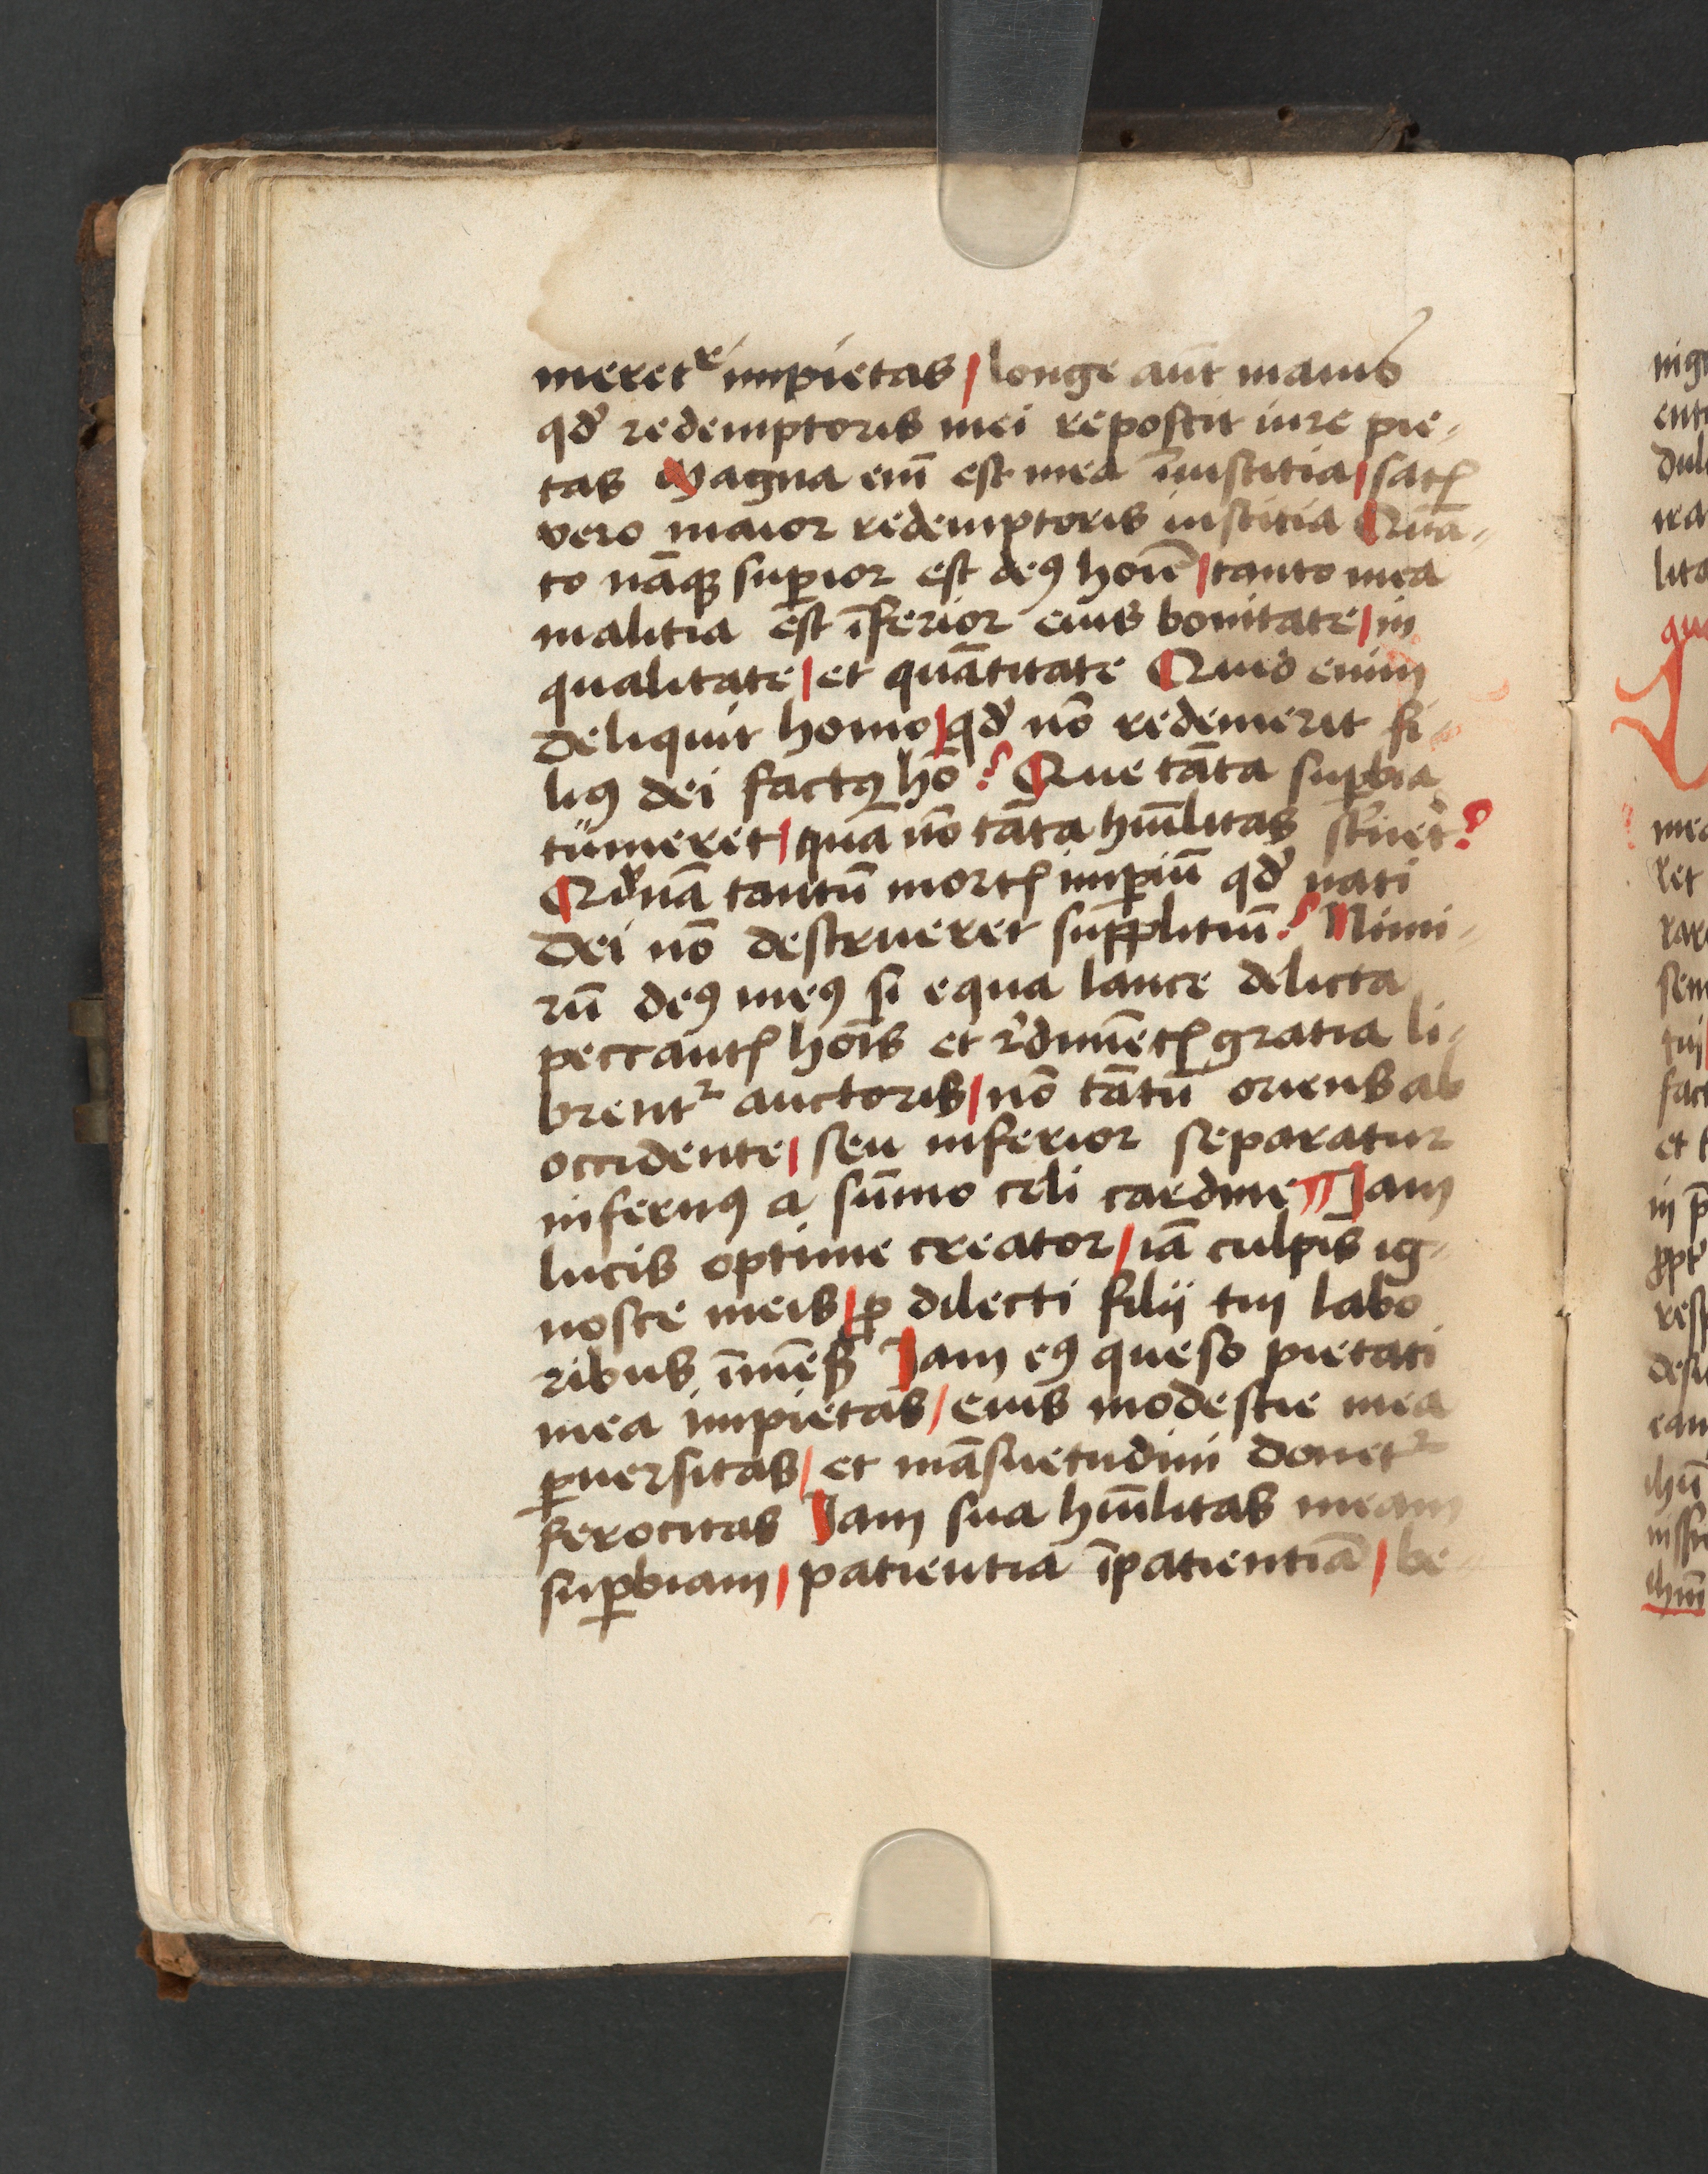 meret᷑ impietas / longe aut̄ maius
qd̛ redemptoris mei reposcit iure pie-
tas Magna em̄ est mea īiusticia / satꝭ
vero maior redemptoris iusticia Quā-
to nāqꝫ suꝑior est deꝰ hoīe / tanto mea
malitia est īferior eius bonitate / in
qualitate / et quātitate Quid enim
deliquit homo / qd̛ nō redemerit fi-
liꝰ dei factꝰ hō? Que tāta suꝑbia
tumeret / quā nō tāta hūilitas st̛neret?
Qd̛nā tantū mortꝭ imꝑiū qd̛ nati
Dei nō destrueret supplitiū? Nimi-
rū deꝰ meꝰ si equa lance delicta
peccantꝭ hoīs et r̛dimētꝭ gratia li-
brentᷣ auctoris / nō tātū oriens ab
occidente / seu inferior separatur
infernꝰ a sūmo celi cardine Jam
lucis optime creator / iā culpis ig-
nosce meis / ꝑ dilecti filij tui labo
ribus īmēs̄ Jam eꝰ queso pietati
mea impietas / eius modestie mea
ꝑuersitas / et māsuetudini donetᷣ
ferocitas Jam sua hūilitas meam
suꝑbiam / patientia īpatientiā / be-